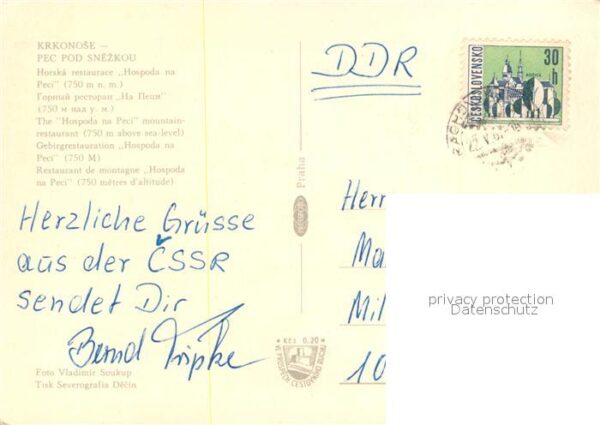 KRKONOŠE —
PEC POD SNĚŽKOU
Horská restaurace „Hospoda na
Peci" (750 m n. m.)
Горный ресторан „На Пеци"
(750 м над у. м.)
The "Hospoda na Peci" mountain-
restaurant (750 m above sea-level)
Gebirgrestauration „Hospoda na
Peci" (750 M)
Restaurant de montagne „Hospoda
na Peci" (750 mètres d'altitude)
Herzliche Grüsse
aus der ČSSR
sendet Dir
Bernd
Foto Vladimír Soukup
Tisk Severografia Děčín
Praha
Kčs 0,20
VE PROSPĚCH CESTOVNÍHO RUCHU
DDR
30
h
ČESKOSLOVENSKO
Herr
Mil
10
privacy protection
Datenschutz